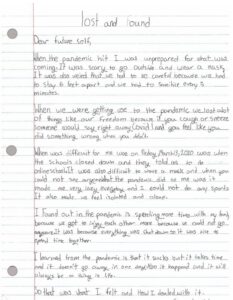 lost and found
Dear future self,
When the pandemic hit I was unprepared for what was
coming. It was scary to go outside and wear a mask,
It was also weird that we had to so careful because we had
to stay 6 feet apart and we had to sanitize every 5
minutes.
When we were getting use to the pandemic we lost alot
of things like our freedom because if you cough or sneeze
someone would say right away (covid) and you feel like you
did something wrong when you didn't.
What was difficult for me was on Friday, March 13, 2020 was when
the schools closed down and they told us to do
online school. It was also difficult to wear a mask and when you
could not see anyone. What the pandemic did to me was it
made me very lazy everyday and I could not do any sports
It also made me feel isolated and alone.
I found out in the pandemic is spending more time with my family
because we got to enjoy each other more because we could not go
anywhere. It was because everything was shut down so it was nice to
spend time together.
I learned from the pandemic is that it sucks but it takes time
and it doesn't go away in one day. So it happened and it will
always be in living in life.
So that was what I felt and how I dealed with it.